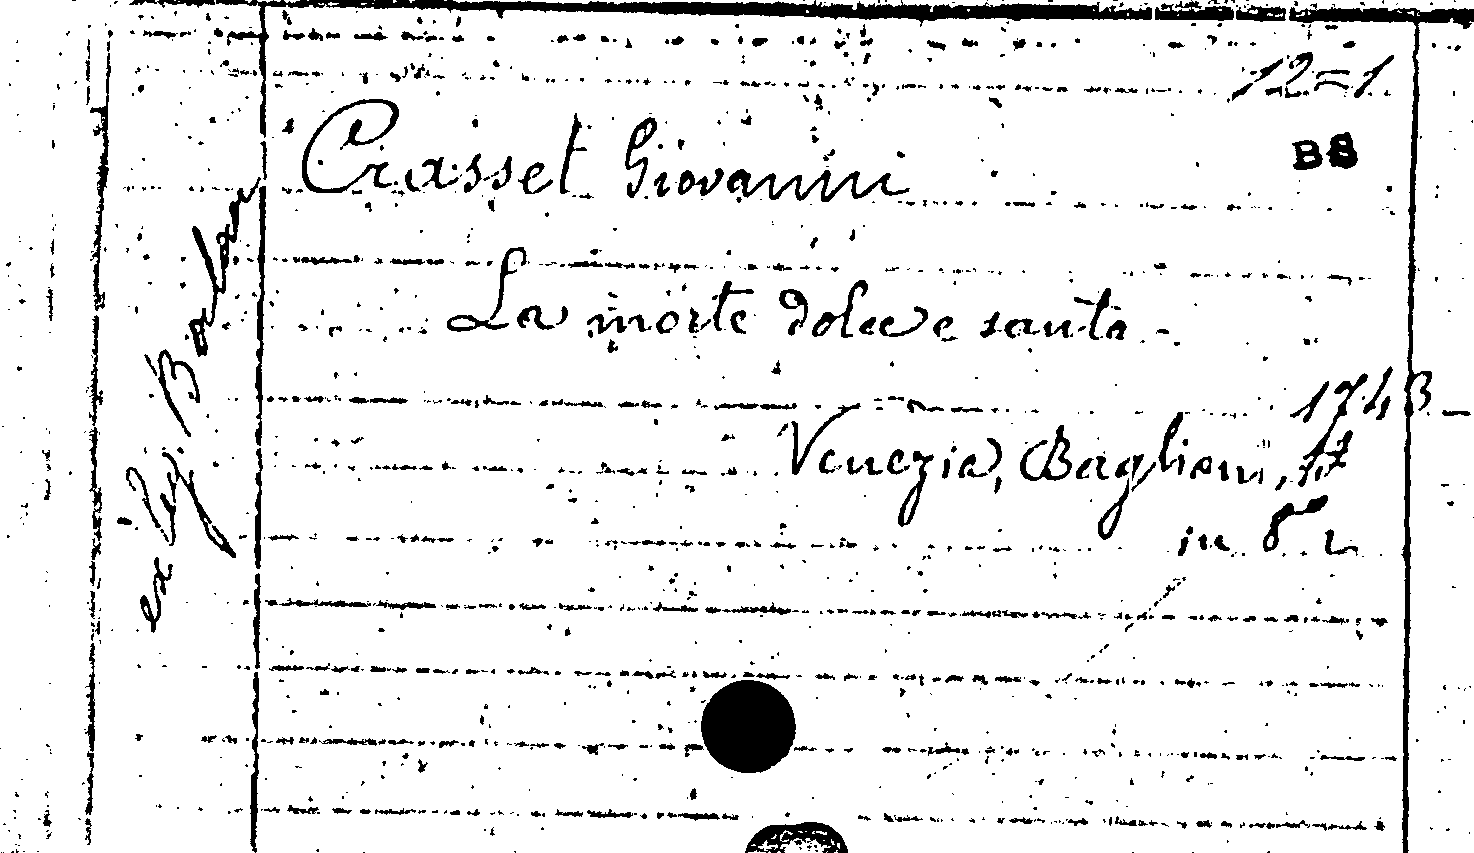 12=1
BS
Crasset Giovanni
La morte dolce e santa -
1743 -
Venezia, Baglioni, 17
in 8º
ex leg.